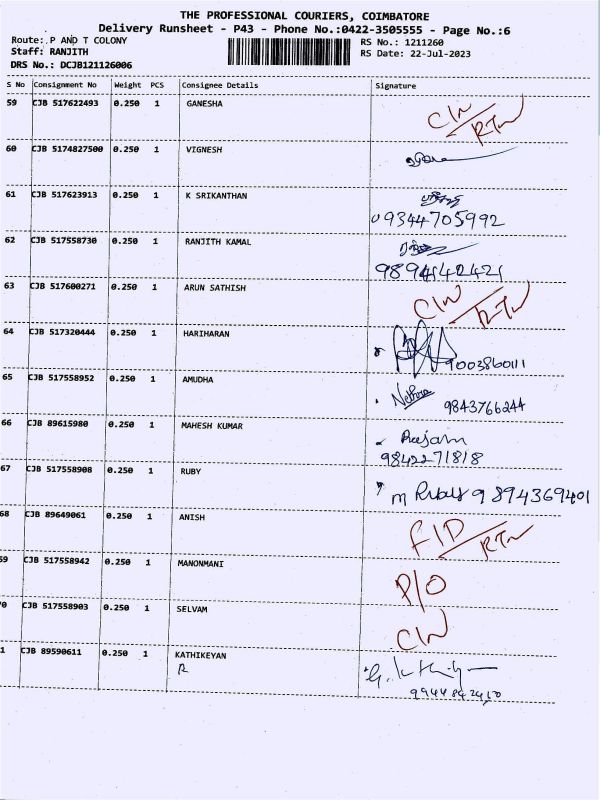 THE PROFESSIONAL COURIERS, COIMBATORE
Delivery Runsheet - P43 - Phone No.:0422-3505555 - Page No.:6
Route: P AND T COLONY RS No.: 1211260
Staff: RANJITH RS Date: 22-Jul-2023
DRS No.: DCJB121126006
S No Consignment No Weight PCS Consignee Details Signature
59 CJB 517622493 0.250 1 GANESHA C/N RTN
60 CJB 5174827500 0.250 1 VIGNESH
61 CJB 517623913 0.250 1 K SRIKANTHAN
9344705992
62 CJB 517558730 0.250 1 RANJITH KAMAL
9894140421
63 CJB 517600271 0.250 1 ARUN SATHISH C/N RTN
64 CJB 517320444 0.250 1 HARIHARAN
9003860111
65 CJB 517558952 0.250 1 AMUDHA Nethra 9843766244
66 CJB 89615980 0.250 1 MAHESH KUMAR Rajam
9842271818
67 CJB 517558908 0.250 1 RUBY m Ruby 9894369401
68 CJB 89649061 0.250 1 ANISH F/D RTN
59 CJB 517558942 0.250 1 MANONMANI P/O
0 CJB 517558903 0.250 1 SELVAM C/N
1 CJB 89590611 0.250 1 KATHIKEYAN
R